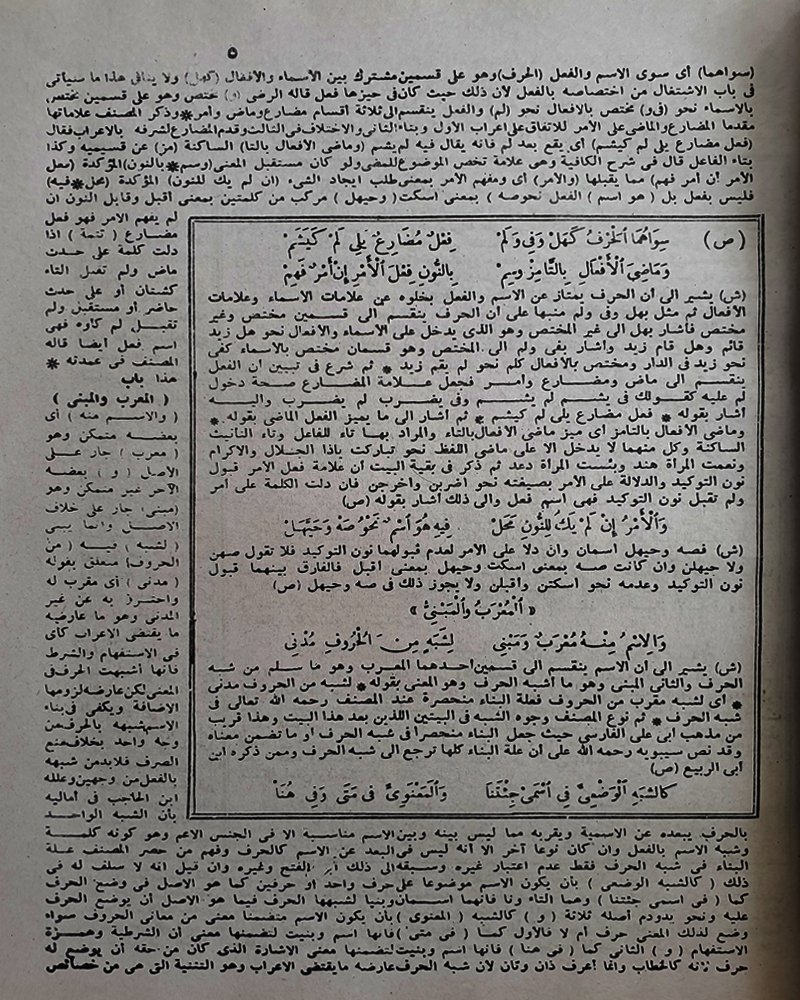 ٥
(سواهما) أى سوى الاسم والفعل (الحرف) وهو على قسمين مشترك بين الأسماء والأفعال (كهل) ولا ينافى هذا ما سيأتى
فى باب الاشتغال من اختصاصه بالفعل لأن ذلك حيث كان فى حيزها فعل قاله الرضى (و) مختص وهو على قسمين مختص
بالأسماء نحو (فى و) مختص بالأفعال نحو (لم) والفعل ينقسم الى ثلاثة أقسام مضارع وماض وأمر * وذكر المصنف علاماتها
مقدما المضارع والماضى على الأمر للاتفاق على اعراب الأول وبناء الثانى والاختلاف فى الثالث وقدم المضارع لشرفه بالاعراب فقال
(فعل مضارع يلى لم كيشم) أى يقع بعد لم فانه يقال فيه لم يشم (وماضى الأفعال بالتا) الساكنة (مز) عن قسيميه وكذا
بتاء الفاعل قال فى شرح الكافية وهى علامة تخص الموضوع للمضى ولو كان مستقبل المعنى (وسم * بالنون) المؤكدة (فعل
الأمر ان أمر فهم) مما يقبلها (والأمر) أى ومفهم الأمر بمعنى طلب ايجاد الشىء (ان لم يك للنون) المؤكدة (محل * فيه)
فليس بفعل بل (هو اسم) الفعل نحو صه) بمعنى اسكت (وحيهل) مركب من كلمتين بمعنى أقبل وقابل النون ان
لم يفهم الأمر فهو فعل
مضارع (تتمة) اذا
دلت كلمة على حدث
ماض ولم تقبل التاء
كشتان أو على حدث
حاضر أو مستقبل ولم
تقبل لم كأوه فهى
اسم فعل أيضا قاله
المصنف فى عمدته *
هذا باب
(المعرب والمبنى)
(والاسم منه) أى
بعضه متمكن وهو
(معرب) جار على
الأصل (و) بعضه
الآخر غير متمكن وهو
(مبنى) جار على خلاف
الأصل وانما يبنى
(لشبه) فيه (من
الحروف) متعلق بقوله
(مدنى) أى مقرب له
واحترز به عن غير
المدنى وهو ما عارضه
ما يقتضى الاعراب كأى
فى الاستفهام والشرط
فانها أشبهت الحرف فى
المعنى لكن عارضه لزومها
الاضافة ويكفى فى بناء
الاسم شبهه بالحرف من
وجه واحد بخلاف منع
الصرف فلا بد من شبهه
بالفعل من وجهين وعلله
ابن الحاجب فى أماليه
بأن الشبه الواحد
(ص) سِوَاهُمَا الْحَرْفُ كَهَلْ وَفِى وَلَمْ فِعْلٌ مُضَارِعٌ يَلِى لَمْ كَيَشَمْ
وَمَاضِىَ الْأَفْعَالِ بِالتَّا مِزْ وَسِمْ بِالنُّونِ فِعْلَ الْأَمْرِ إِنْ أَمْرٌ فُهِمْ
(ش) يشير الى أن الحرف يمتاز عن الاسم والفعل بخلوه عن علامات الأسماء وعلامات
الأفعال ثم مثل بهل وفى ولم منبها على أن الحرف ينقسم الى قسمين مختص وغير
مختص فأشار بهل الى غير المختص وهو الذى يدخل على الأسماء والأفعال نحو هل زيد
قائم وهل قام زيد وأشار بفى ولم الى المختص وهو قسمان مختص بالأسماء كفى
نحو زيد فى الدار ومختص بالأفعال كلم نحو لم يقم زيد * ثم شرع فى تبيين أن الفعل
ينقسم الى ماض ومضارع وأمر فجعل علامة المضارع صحة دخول
لم عليه كقولك فى يشم لم يشم وفى يضرب لم يضرب واليه
أشار بقوله * فعل مضارع يلى لم كيشم * ثم أشار الى ما يميز الفعل الماضى بقوله *
وماضى الأفعال بالتامز أى ميز ماضى الأفعال بالتاء والمراد بها تاء للفاعل وتاء التأنيث
الساكنة وكل منهما لا يدخل الا على ماضى اللفظ نحو تباركت ياذا الجلال والاكرام
ونعمت المرأة هند وبئست المرأة دعد ثم ذكر فى بقية البيت أن علامة فعل الأمر قبول
نون التوكيد والدلالة على الأمر بصيغته نحو اضربن واخرجن فان دلت الكلمة على أمر
ولم تقبل نون التوكيد فهى اسم فعل والى ذلك أشار بقوله (ص)
وَالْأَمْرُ إِنْ لَمْ يَكُ لِلنُّونِ مَحَلْ فِيهِ هُوَ اسْمٌ نَحْوُ صَهْ وَحَيَّهَلْ
(ش) فصه وحيهل اسمان وان دلا على الأمر لعدم قبولهما نون التوكيد فلا تقول صهن
ولا حيهلن وان كانت صه بمعنى اسكت وحيهل بمعنى أقبل فالفارق بينهما قبول
نون التوكيد وعدمه نحو اسكتن واقبلن ولا يجوز ذلك فى صه وحيهل (ص)
« الْمُعْرَبُ وَالْمَبْنِىُّ »
وَالِاسْمُ مِنْهُ مُعْرَبٌ وَمَبْنِى لِشَبَهٍ مِنَ الْحُرُوفِ مُدْنِى
(ش) يشير الى أن الاسم ينقسم الى قسمين أحدهما المعرب وهو ما سلم من شبه
الحرف والثانى المبنى وهو ما أشبه الحرف وهو المعنى بقوله * لشبه من الحروف مدنى
* أى لشبه مقرب من الحروف فعلة البناء منحصرة عند المصنف رحمه الله تعالى فى
شبه الحرف * ثم نوع المصنف وجوه الشبه فى البيتين اللذين بعد هذا البيت وهذا قريب
من مذهب أبى على الفارسى حيث جعل البناء منحصرا فى شبه الحرف أو ما تضمن معناه
وقد نص سيبويه رحمه الله على أن علة البناء كلها ترجع الى شبه الحرف وممن ذكره ابن
أبى الربيع (ص)
كَالشَّبَهِ الْوَضْعِىِّ فِى اسْمَىْ جِئْتَنَا وَالْمَعْنَوِىِّ فِى مَتَى وَفِى هُنَا
بالحرف يبعده عن الاسمية ويقربه مما ليس بينه وبين الاسم مناسبة الا فى الجنس الأعم وهو كونه كلمة
وشبه الاسم بالفعل وان كان نوعا آخر الا أنه ليس فى البعد عن الاسم كالحرف وفهم من حصر المصنف علة
البناء فى شبه الحرف فقط عدم اعتبار غيره وسبقه الى ذلك أبو الفتح وغيره وان قيل انه لا سلف له فى
ذلك (كالشبه الوضعى) بأن يكون الاسم موضوعا على حرف واحد أو حرفين كما هو الأصل فى وضع الحرف
كما (فى اسمى جئتنا) وهما التاء ونا فانهما اسمان وبنيا لشبهها الحرف فيما هو الأصل أن يوضع الحرف
عليه ونحو يد ودم أصله ثلاثة (و) كالشبه (المعنوى) بأن يكون الاسم متضمنا معنى من معانى الحروف سواء
وضع لذلك المعنى حرف أم لا فالأول كما (فى متى) فانها اسم وبنيت لتضمنها معنى أن الشرطية وهمزة
الاستفهام (و) الثانى كما (فى هنا) فانها اسم وبنيت لتضمنها معنى الاشارة الذى كان من حقه أن يوضع له
حرف لأنه كالخطاب وانما أعرف ذان وتان لأن شبه الحرف عارضه ما يقتضى الاعراب وهو التثنية التى هى من خصائص